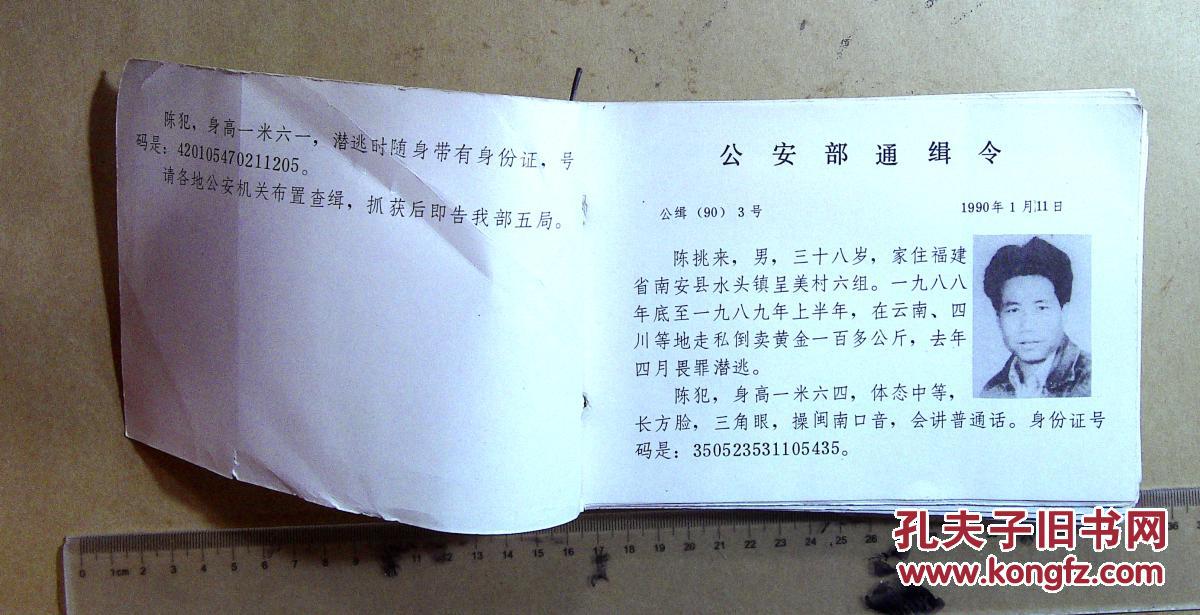 陈犯，身高一米六一，潜逃时随身带有身份证，号
码是：420105470211205。
请各地公安机关布置查缉，抓获后即告我部五局。
公安部通缉令
公缉（90）3号
1990年1月11日
陈挑来，男，三十八岁，家住福建
省南安县水头镇呈美村六组。一九八八
年底至一九八九年上半年，在云南、四
川等地走私倒卖黄金一百多公斤，去年
四月畏罪潜逃。
陈犯，身高一米六四，体态中等，
长方脸，三角眼，操闽南口音，会讲普通话。身份证号
码是：350523531105435。
0 1cm 2 3 4 5 6 7 8 9 10 11 12 13 14 15 16 17 18 19 20 21 22 23 24 25 26
孔夫子旧书网
www.kongfz.com